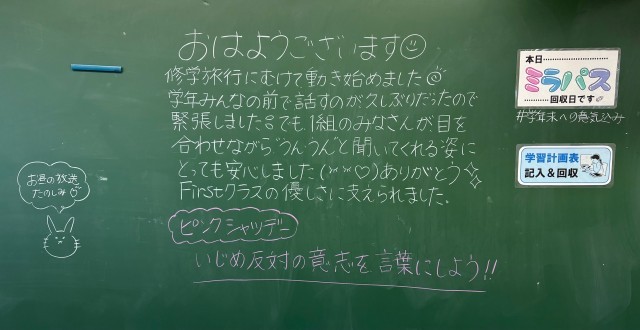 おはようございます
修学旅行にむけて動き始めました
学年みんなの前で話すのが久しぶりだったので
緊張しました。でも、1組のみなさんが目を
合わせながら"うんうん"と聞いてくれる姿に
とっても安心しました(˶ᵔᵔ♡)ありがとう
Firstクラスの優しさに支えられました。
ピンクシャツデー
いじめ反対の意志を言葉にしよう!!
お昼の放送
たのしみ
本日
ミラパス
回収日です
#学年末への意気込み
学習計画表
記入&回収